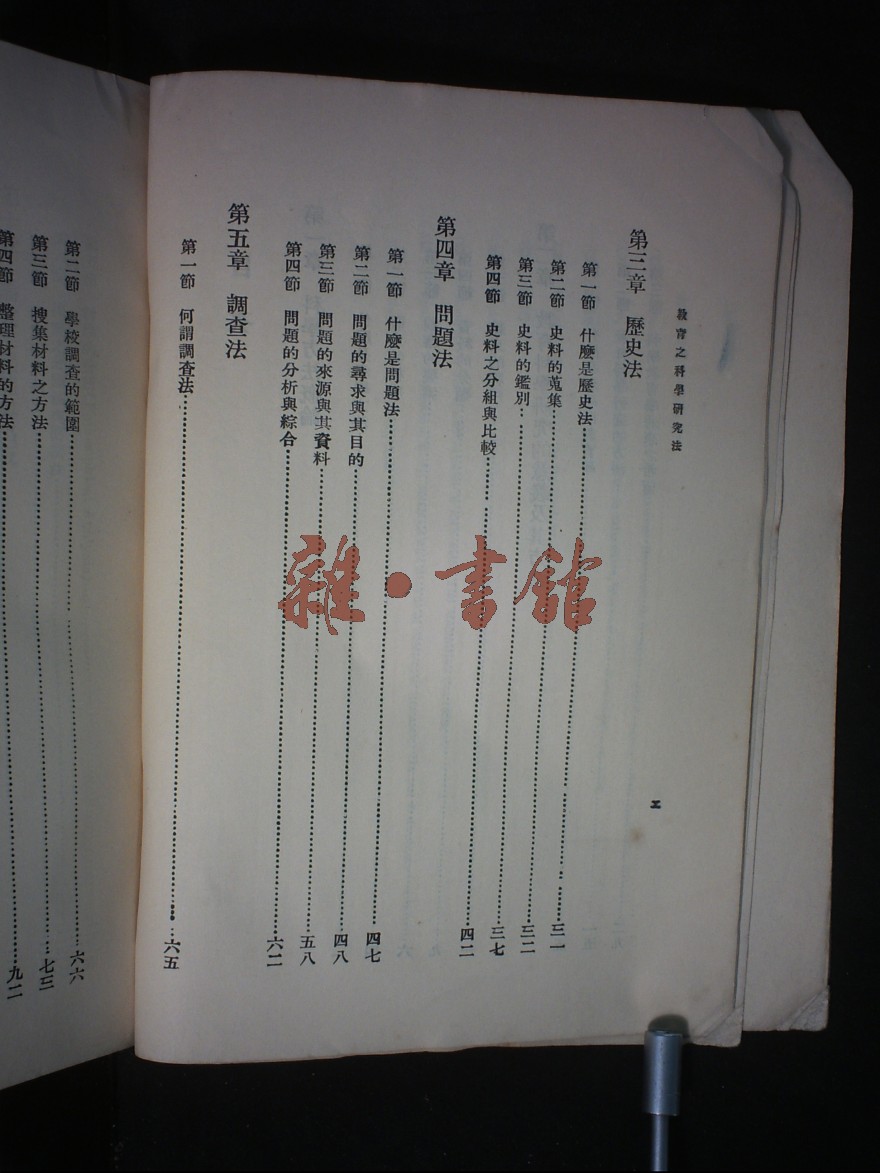 教育之科學研究法
二
第三章 歷史法
第一節 什麼是歷史法……三一
第二節 史料的蒐集……三二
第三節 史料的鑑別……三七
第四節 史料之分組與比較……四二
第四章 問題法
第一節 什麼是問題法……四七
第二節 問題的尋求與其目的……四八
第三節 問題的來源與其資料……五八
第四節 問題的分析與綜合……六二
第五章 調查法
第一節 何謂調查法……六五
第二節 學校調查的範圍……六六
第三節 搜集材料之方法……七三
第四節 整理材料的方法……九二
雜·書館